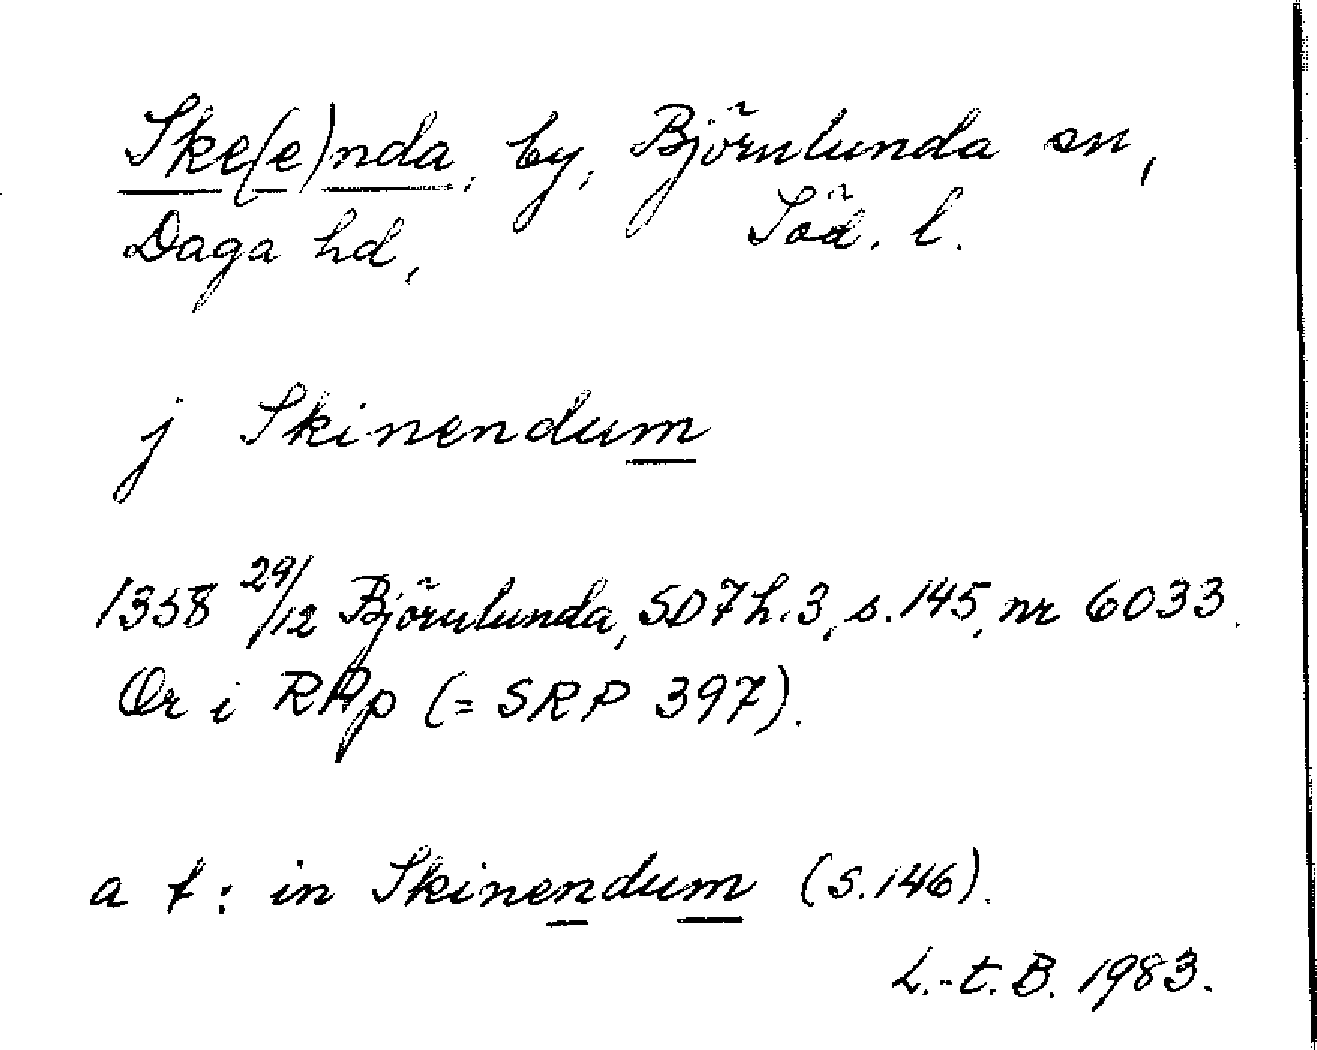 Ske(e)nda, by, Björnlunda sn,
Daga hd, Söd. l.
j Skinendum
1358 29/12 Björnlunda, SD7h.3, s.145, nr 6033.
Or i RAp (= SRP 397).
a t: in Skinendum (s.146).
L.-t. B. 1983.